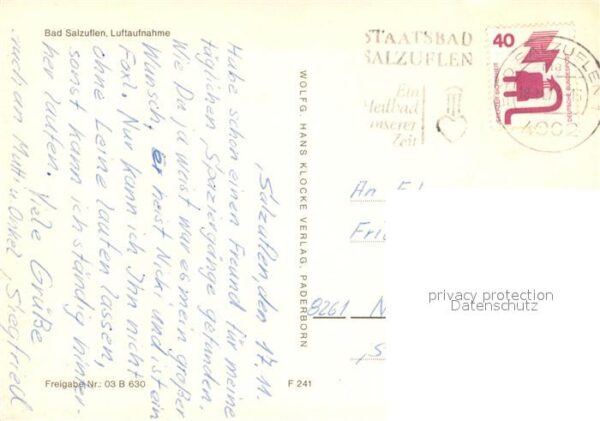 Bad Salzuflen, Luftaufnahme
Salzuflen, den 17.11.
Habe schon einen Freund für meine
täglichen Spaziergänge gefunden.
Wie Du ja weist war es mein großer
Wunsch, er heist Nicki und ist ein
Foxl. Nur kann ich Ihn nicht
ohne Leine laufen lassen,
sonst kann ich ständig hinter-
her laufen. Viele Grüße
auch an Mutti u. Onkel, Siegfried
Freigabe Nr.: 03 B 630
F 241
WOLFG. HANS KLOCKE VERLAG, PADERBORN
STAATSBAD
SALZUFLEN
Ein
Heilbad
unserer
Zeit
40
DEUTSCHE BUNDESPOST
4902
An
8261
privacy protection
Datenschutz